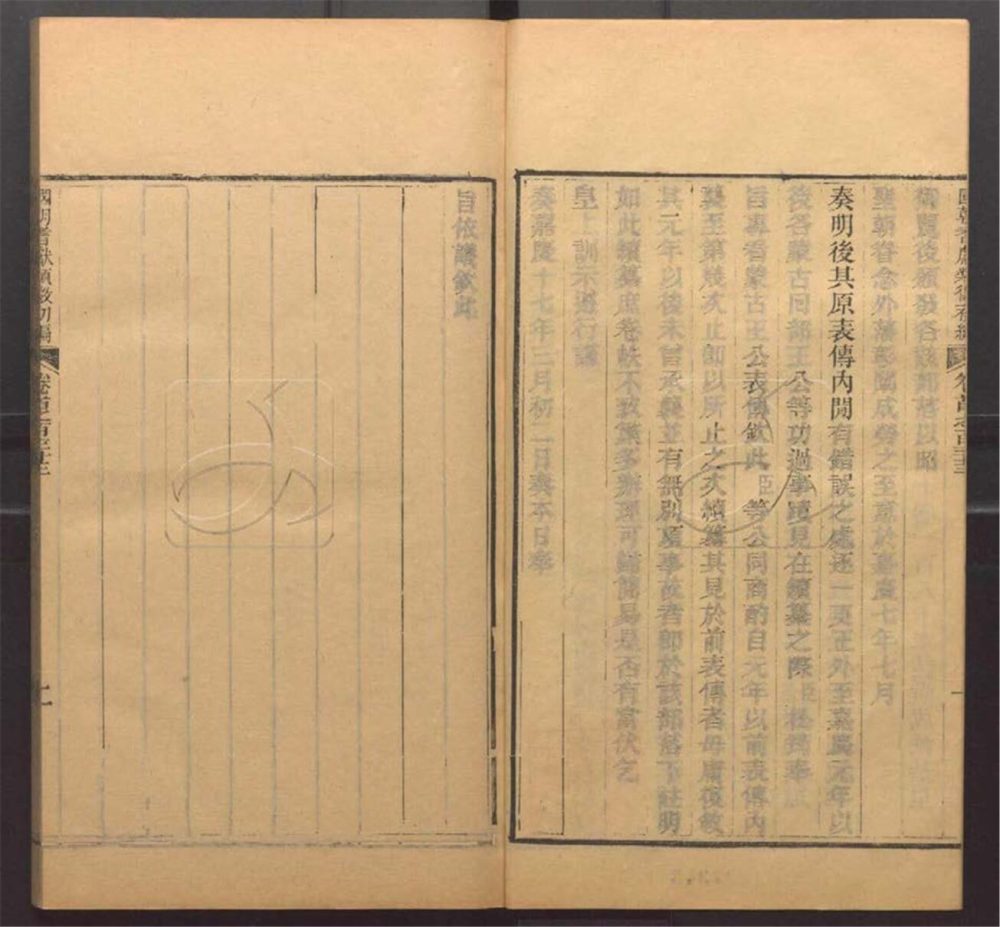 御覽後頒發各該部落以昭
聖朝眷念外藩彰闡成勞之至意於嘉慶七年七月
奏明後其原表傳內間有錯誤之處逐一更正外至嘉慶元年以
後各蒙古回部王公等功過事蹟見在續纂之際臣
旨專看蒙古王公表傳欽此臣等公同商酌自元年以前表傳內
襲至第幾次止卽以所止之次續纂其見於前表傳者毋庸復敘
其元年以後未言承襲並有無別項事故者卽於該部落下註明
如此續纂庶卷帙不致繁多辦理可歸簡易是否有當伏乞
皇上訓示遵行謹
奏嘉慶十七年三月初二日奏本日奉
旨依議欽此
國朝耆獻類徵初編